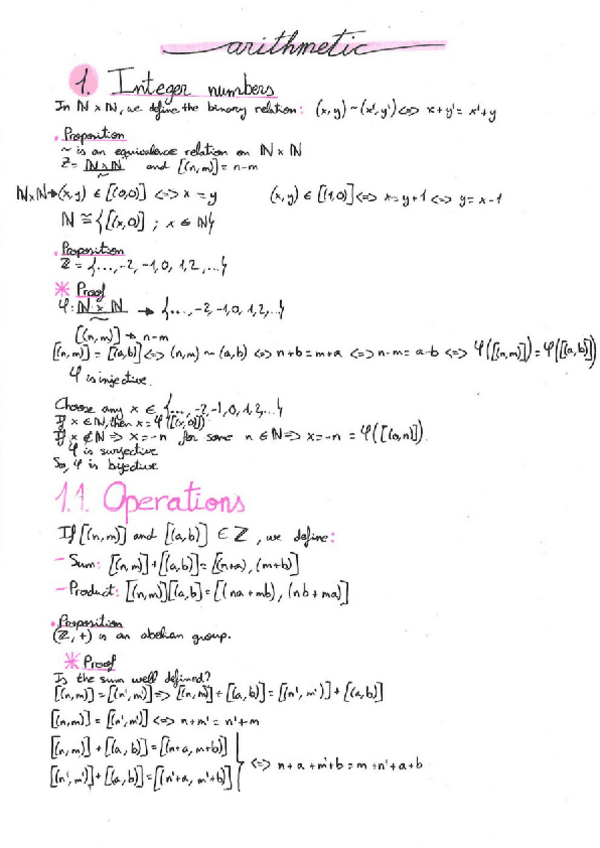 arithmetic
1. Integer numbers
In ℕ×ℕ, we define the binary relation: (x,y) ~ (x',y') <=> x+y' = x'+y
. Proposition
~ is an equivalence relation on ℕ×ℕ
Z = ℕ×ℕ/~ and [(n,m)] = n-m
ℕ×ℕ→(x,y) ∈ [(0,0)] <=> x = y (x,y) ∈ [(1,0)] <=> x = y+1 <=> y = x-1
ℕ ≅ {[(x,0)] ; x ∈ ℕ}
. Proposition
ℤ = {..., -2, -1, 0, 1, 2, ...}
* Proof
φ: ℕ×ℕ/~ → {..., -2, -1, 0, 1, 2, ...}
[(n,m)] → n-m
[(n,m)] = [(a,b)] <=> (n,m) ~ (a,b) <=> n+b = m+a <=> n-m = a-b <=> φ([(n,m)]) = φ([(a,b)])
φ is injective.
Choose any x ∈ {..., -2, -1, 0, 1, 2, ...}
If x ∈ ℕ, then x = φ([(x,0)])
If x ∉ ℕ => x = -n for some n ∈ ℕ => x = -n = φ([(0,n)]).
φ is surjective
So, φ is byective
1.1. Operations
If [(n,m)] and [(a,b)] ∈ ℤ, we define:
- Sum: [(n,m)]+[(a,b)] = [(n+a), (m+b)]
- Product: [(n,m)][(a,b)] = [(na+mb), (nb+ma)]
. Proposition
(ℤ,+) is an abelian group.
* Proof
Is the sum well defined?
[(n,m)] = [(n',m')] => [(n,m)] + [(a,b)] = [(n',m')] + [(a,b)]
[(n,m)] = [(n',m')] <=> n+m' = n'+m
[(n,m)] + [(a,b)] = [(n+a, m+b)]
[(n',m')] + [(a,b)] = [(n'+a, m'+b)] } <=> n+a+m'+b = m+n'+a+b